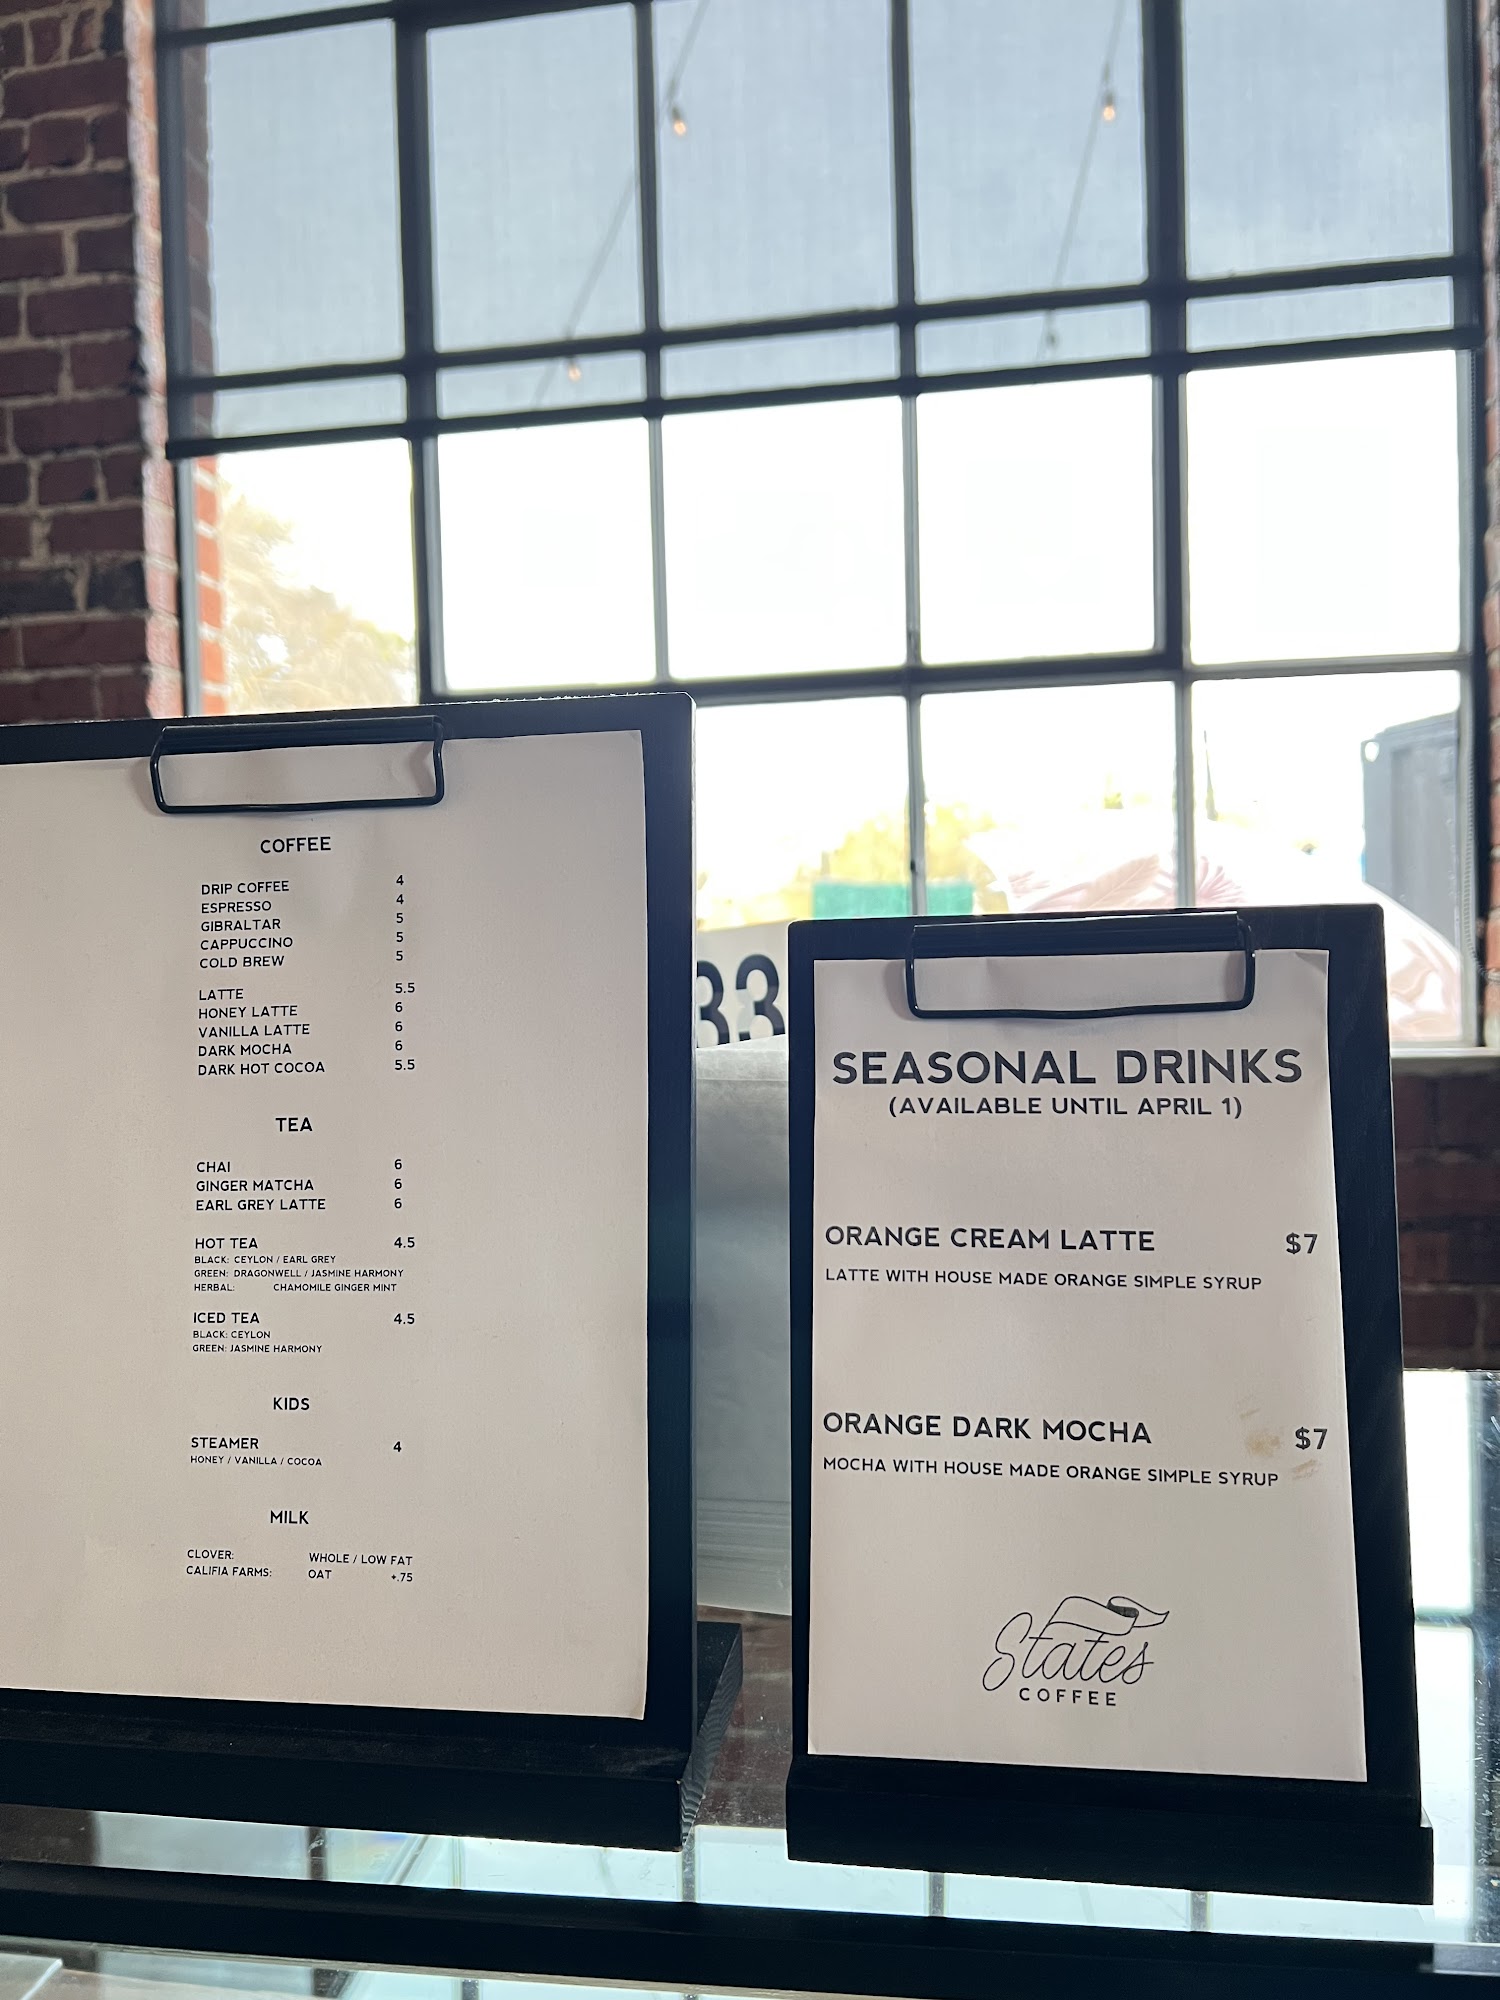 COFFEE
DRIP COFFEE 4
ESPRESSO 4
GIBRALTAR 5
CAPPUCCINO 5
COLD BREW 5
LATTE 5.5
HONEY LATTE 6
VANILLA LATTE 6
DARK MOCHA 6
DARK HOT COCOA 5.5
TEA
CHAI 6
GINGER MATCHA 6
EARL GREY LATTE 6
HOT TEA 4.5
BLACK: CEYLON / EARL GREY
GREEN: DRAGONWELL / JASMINE HARMONY
HERBAL: CHAMOMILE GINGER MINT
ICED TEA 4.5
BLACK: CEYLON
GREEN: JASMINE HARMONY
KIDS
STEAMER 4
HONEY / VANILLA / COCOA
MILK
CLOVER: WHOLE / LOW FAT
CALIFIA FARMS: OAT +.75
33
SEASONAL DRINKS
(AVAILABLE UNTIL APRIL 1)
ORANGE CREAM LATTE $7
LATTE WITH HOUSE MADE ORANGE SIMPLE SYRUP
ORANGE DARK MOCHA $7
MOCHA WITH HOUSE MADE ORANGE SIMPLE SYRUP
States
COFFEE